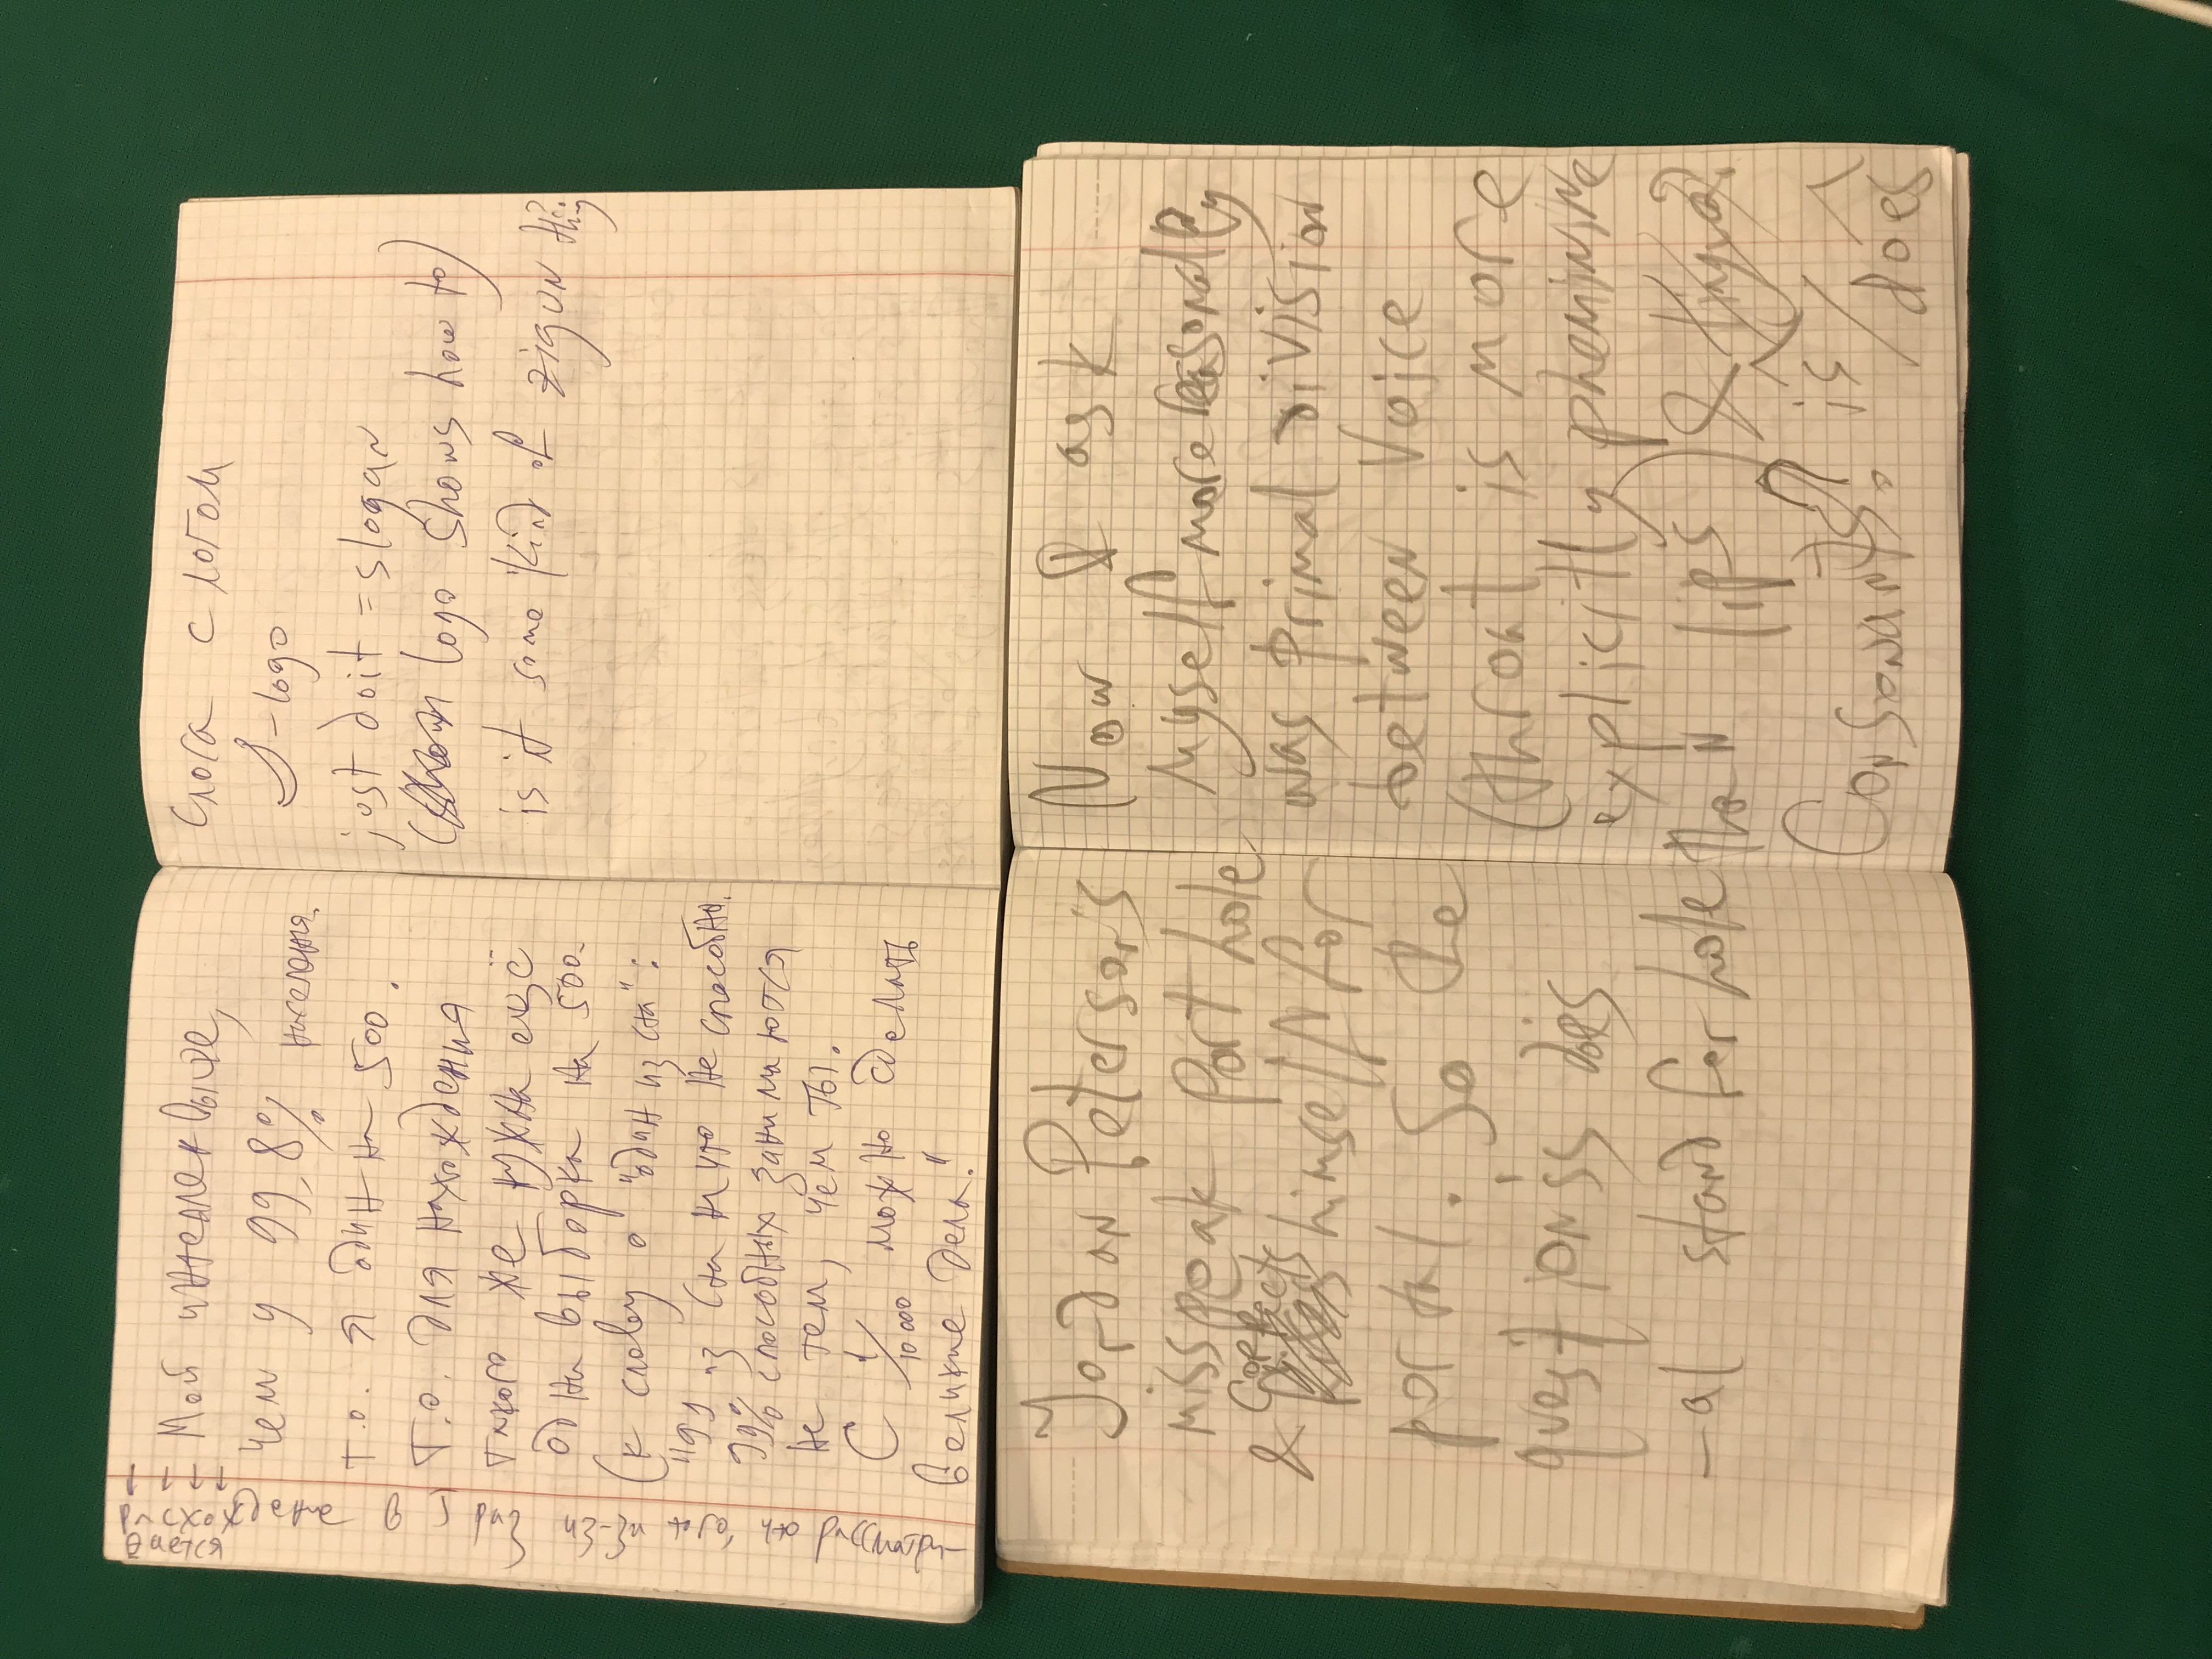 Мой интеллек выше,
чем у 99,8% населения.
т.о. я один на 500.
Т.о. для нахождения
такого же нужна ещё
одна выборка на 500.
(к слову о "один из ста":
"99 из ста ни что не способны.
99% способных занимаются
не тем, чем ты.
С 1/10 000 можно сделать
великие дела."
↓ ↓ ↓ ↓
расхождение в 5 раз из-за того, что рассматри-
вается
слога с логом
S-logo
just doit = slogan
( logo shows how to)
is it some kind of zigun thing?
Jordan Peterson's
misspeak Port hole,
& corrects himself for
portal. So the
question's does
-al stand for hole
Now I ask
myself more reasonally
was primal division
between Voice
(throat is more
explicitly pheminine
than lips) &
Consonants? is/does